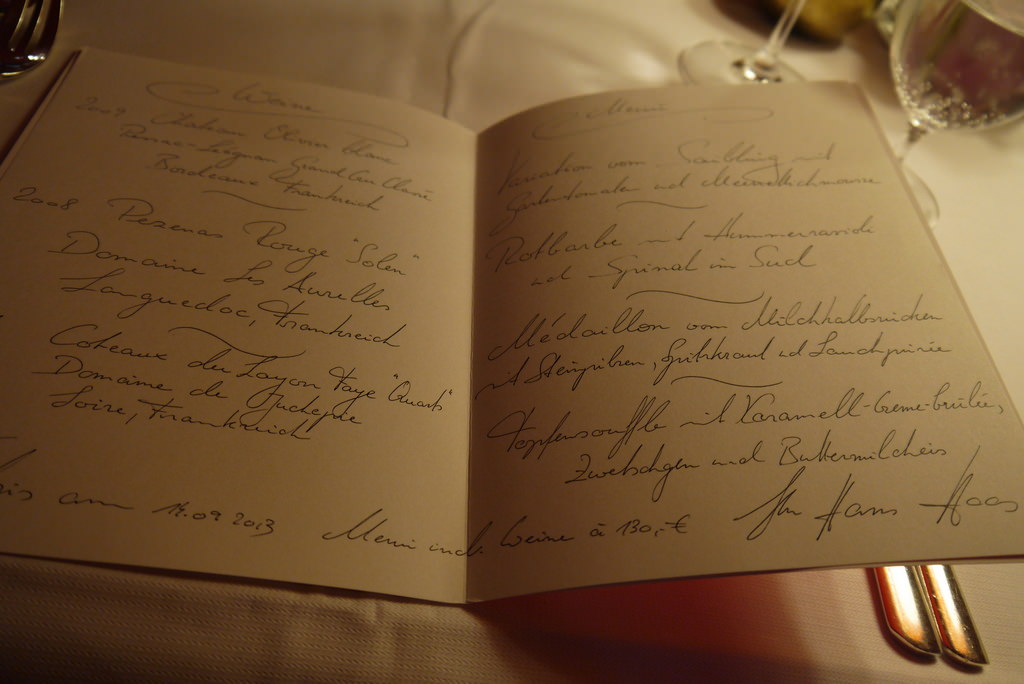 Weine
2009 Chateau Olivier Blanc
Pessac-Léognan Grand Cru Classé
Bordeaux, Frankreich
2008 Pezenas Rouge "Solen"
Domaine Les Aurelles
Languedoc, Frankreich
Coteaux du Layon Faye "Quarts"
Domaine de Juchepie
Loire, Frankreich
am 14.09.2013
Menü
Variation vom Saibling mit
Gartentomaten und Meerrettichmousse
Rotbarbe mit Hummerravioli
und Spinat im Sud
Médaillon vom Milchkalbsrücken
mit Steinpilzen, Spitzkraut und Lauchpürée
Topfensouffle mit Karamell-Creme-brulée,
Zwetschgen und Buttermilcheis
Menü incl. Weine à 130,-€
Ihr Hans Haas